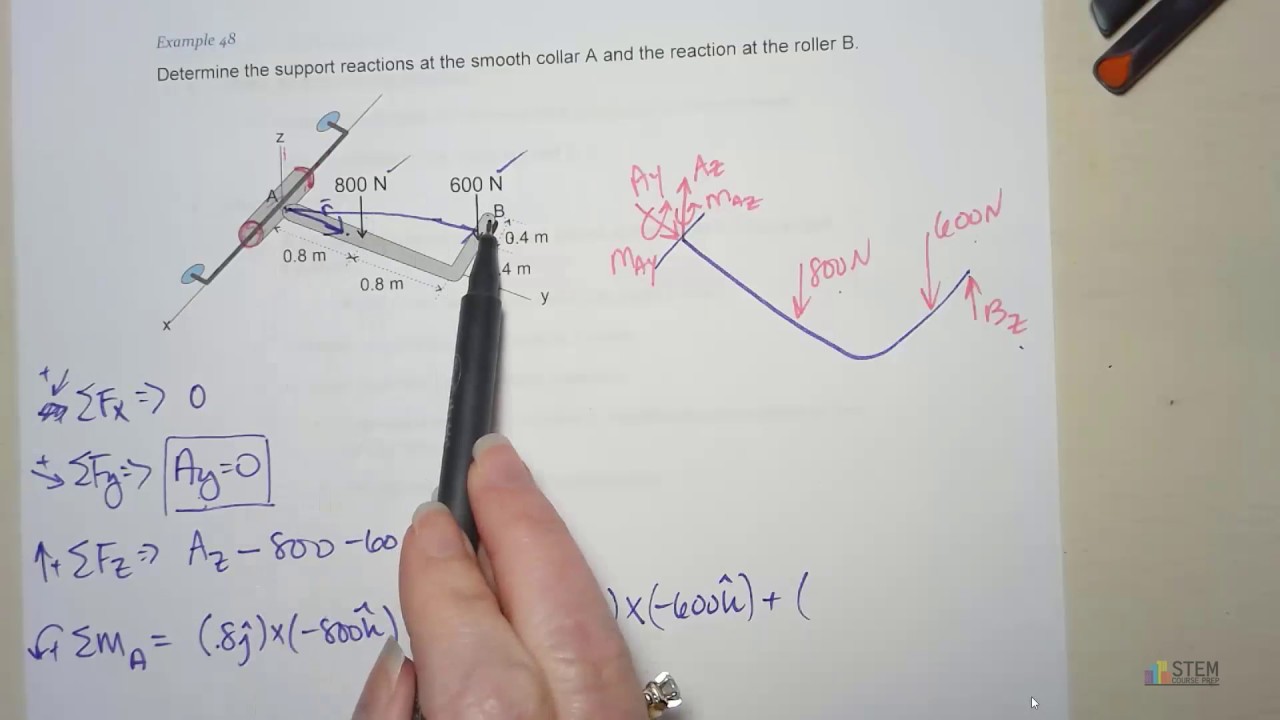 Example 48
Determine the support reactions at the smooth collar A and the reaction at the roller B.
z
A
800 N
600 N
B
0.4 m
0.8 m
4 m
0.8 m
y
x
r
Ay
Az
MAz
MAy
800N
600N
Bz
+ ΣFx => 0
+ ΣFy => Ay=0
+ ΣFz => Az - 800 - 60
+ ΣMA = (.8ĵ)×(-800k̂) )×(-600k̂) + (
STEM
COURSE PREP